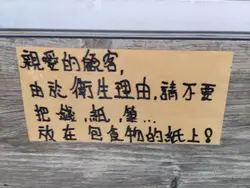 親愛的顧客,
由於衛生理由,請不要
把錢,紙,筆...
放在包食物的紙上!